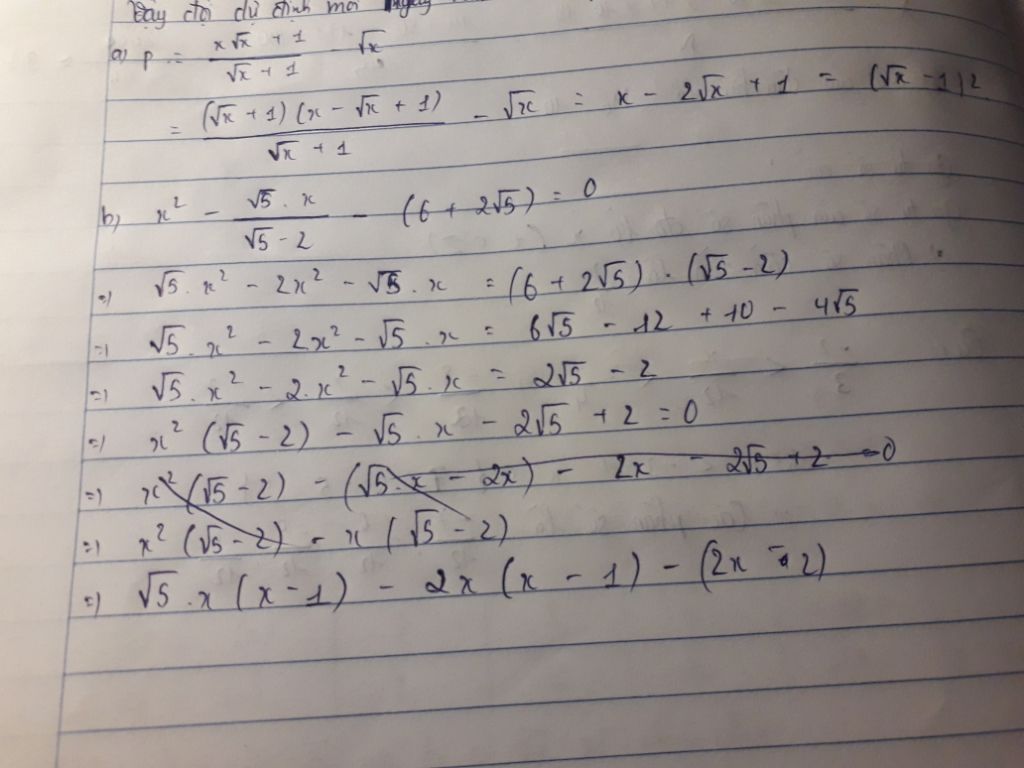 Đây đội dự định mỗi ngày
a) P = \frac{x\sqrt{x} + 1}{\sqrt{x} + 1} - \sqrt{x}
= \frac{(\sqrt{x} + 1)(x - \sqrt{x} + 1)}{\sqrt{x} + 1} - \sqrt{x} = x - 2\sqrt{x} + 1 = (\sqrt{x} - 1)^2
b) x² - \frac{\sqrt{5} . x}{\sqrt{5} - 2} - (6 + 2√5) = 0
=) √5 . x² - 2x² - √5 . x = (6 + 2√5) . (√5 - 2)
=) √5 . x² - 2x² - √5 . x = 6√5 - 12 + 10 - 4√5
=) √5 . x² - 2.x² - √5 . x = 2√5 - 2
=) x² (√5 - 2) - √5 . x - 2√5 + 2 = 0
=) x² (√5 - 2) - (√5 . x - 2x) - 2x - 2√5 + 2 = 0
=) x² (√5 - 2) - x (√5 - 2)
=) √5 . x (x - 1) - 2x (x - 1) - (2x - 2)